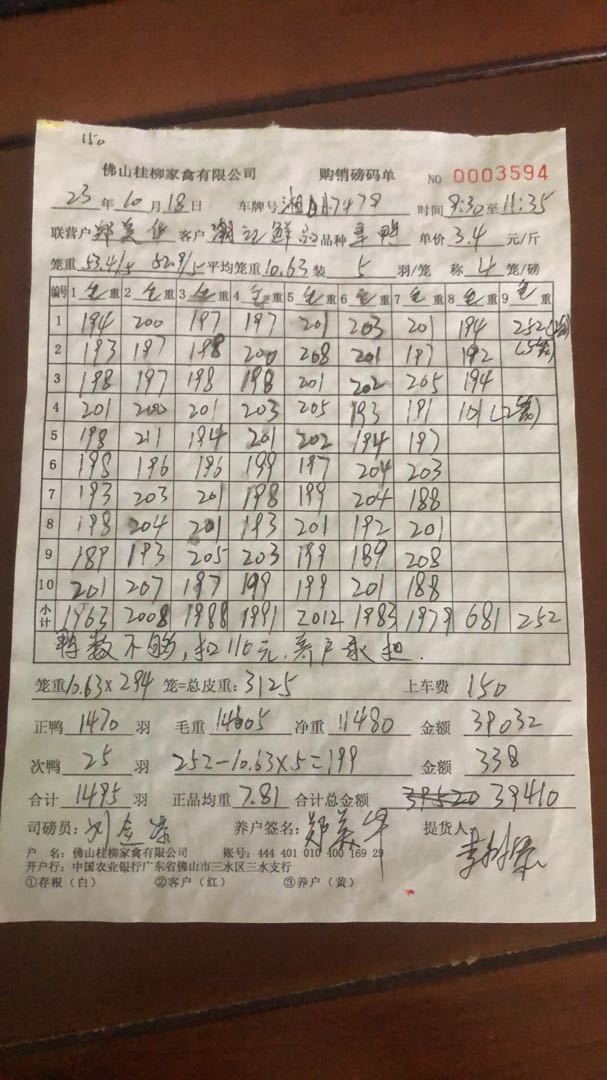 150
佛山桂柳家禽有限公司 购销磅码单 NO 0003594
23年10月18日 车牌号 湘 7479 时间 9:30至11:35
联营户 郑美华 客户 潮记鲜 品种 旱鸭 单价 3.4 元/斤
笼重 53.4/5 52.9/5 平均笼重 10.63 装 5 羽/笼 称 4 笼/磅
编号 1 毛重 2 毛重 3 毛重 4 毛重 5 毛重 6 毛重 7 毛重 8 毛重 9 毛重
1 194 200 197 197 201 203 201 194 252
2 193 197 198 200 208 201 197 192
3 198 197 198 198 201 202 205 194
4 201 200 201 203 205 193 191 101(2笼)
5 198 211 194 201 202 194 197
6 198 196 196 199 197 204 203
7 193 203 201 198 199 204 188
8 198 204 201 193 201 192 201
9 189 193 205 203 199 189 208
10 201 207 197 199 199 201 188
小计 1963 2008 1988 1991 2012 1983 1979 681 252
鸭数不够,扣110元,养户承担.
笼重 10.63×294 笼=总皮重: 3125 上车费 150
正鸭 1470 羽 毛重 14605 净重 11480 金额 39032
次鸭 25 羽 252-10.63×5=199 金额 338
合计 1495 羽 正品均重 7.81 合计总金额 39520 39410
司磅员: 刘 养户签名: 郑美华 提货人:
户 名: 佛山桂柳家禽有限公司 账号: 444 401 010 400 169 29
开户行: 中国农业银行广东省佛山市三水区三水支行
①存根(白) ②客户(红) ③养户(黄)